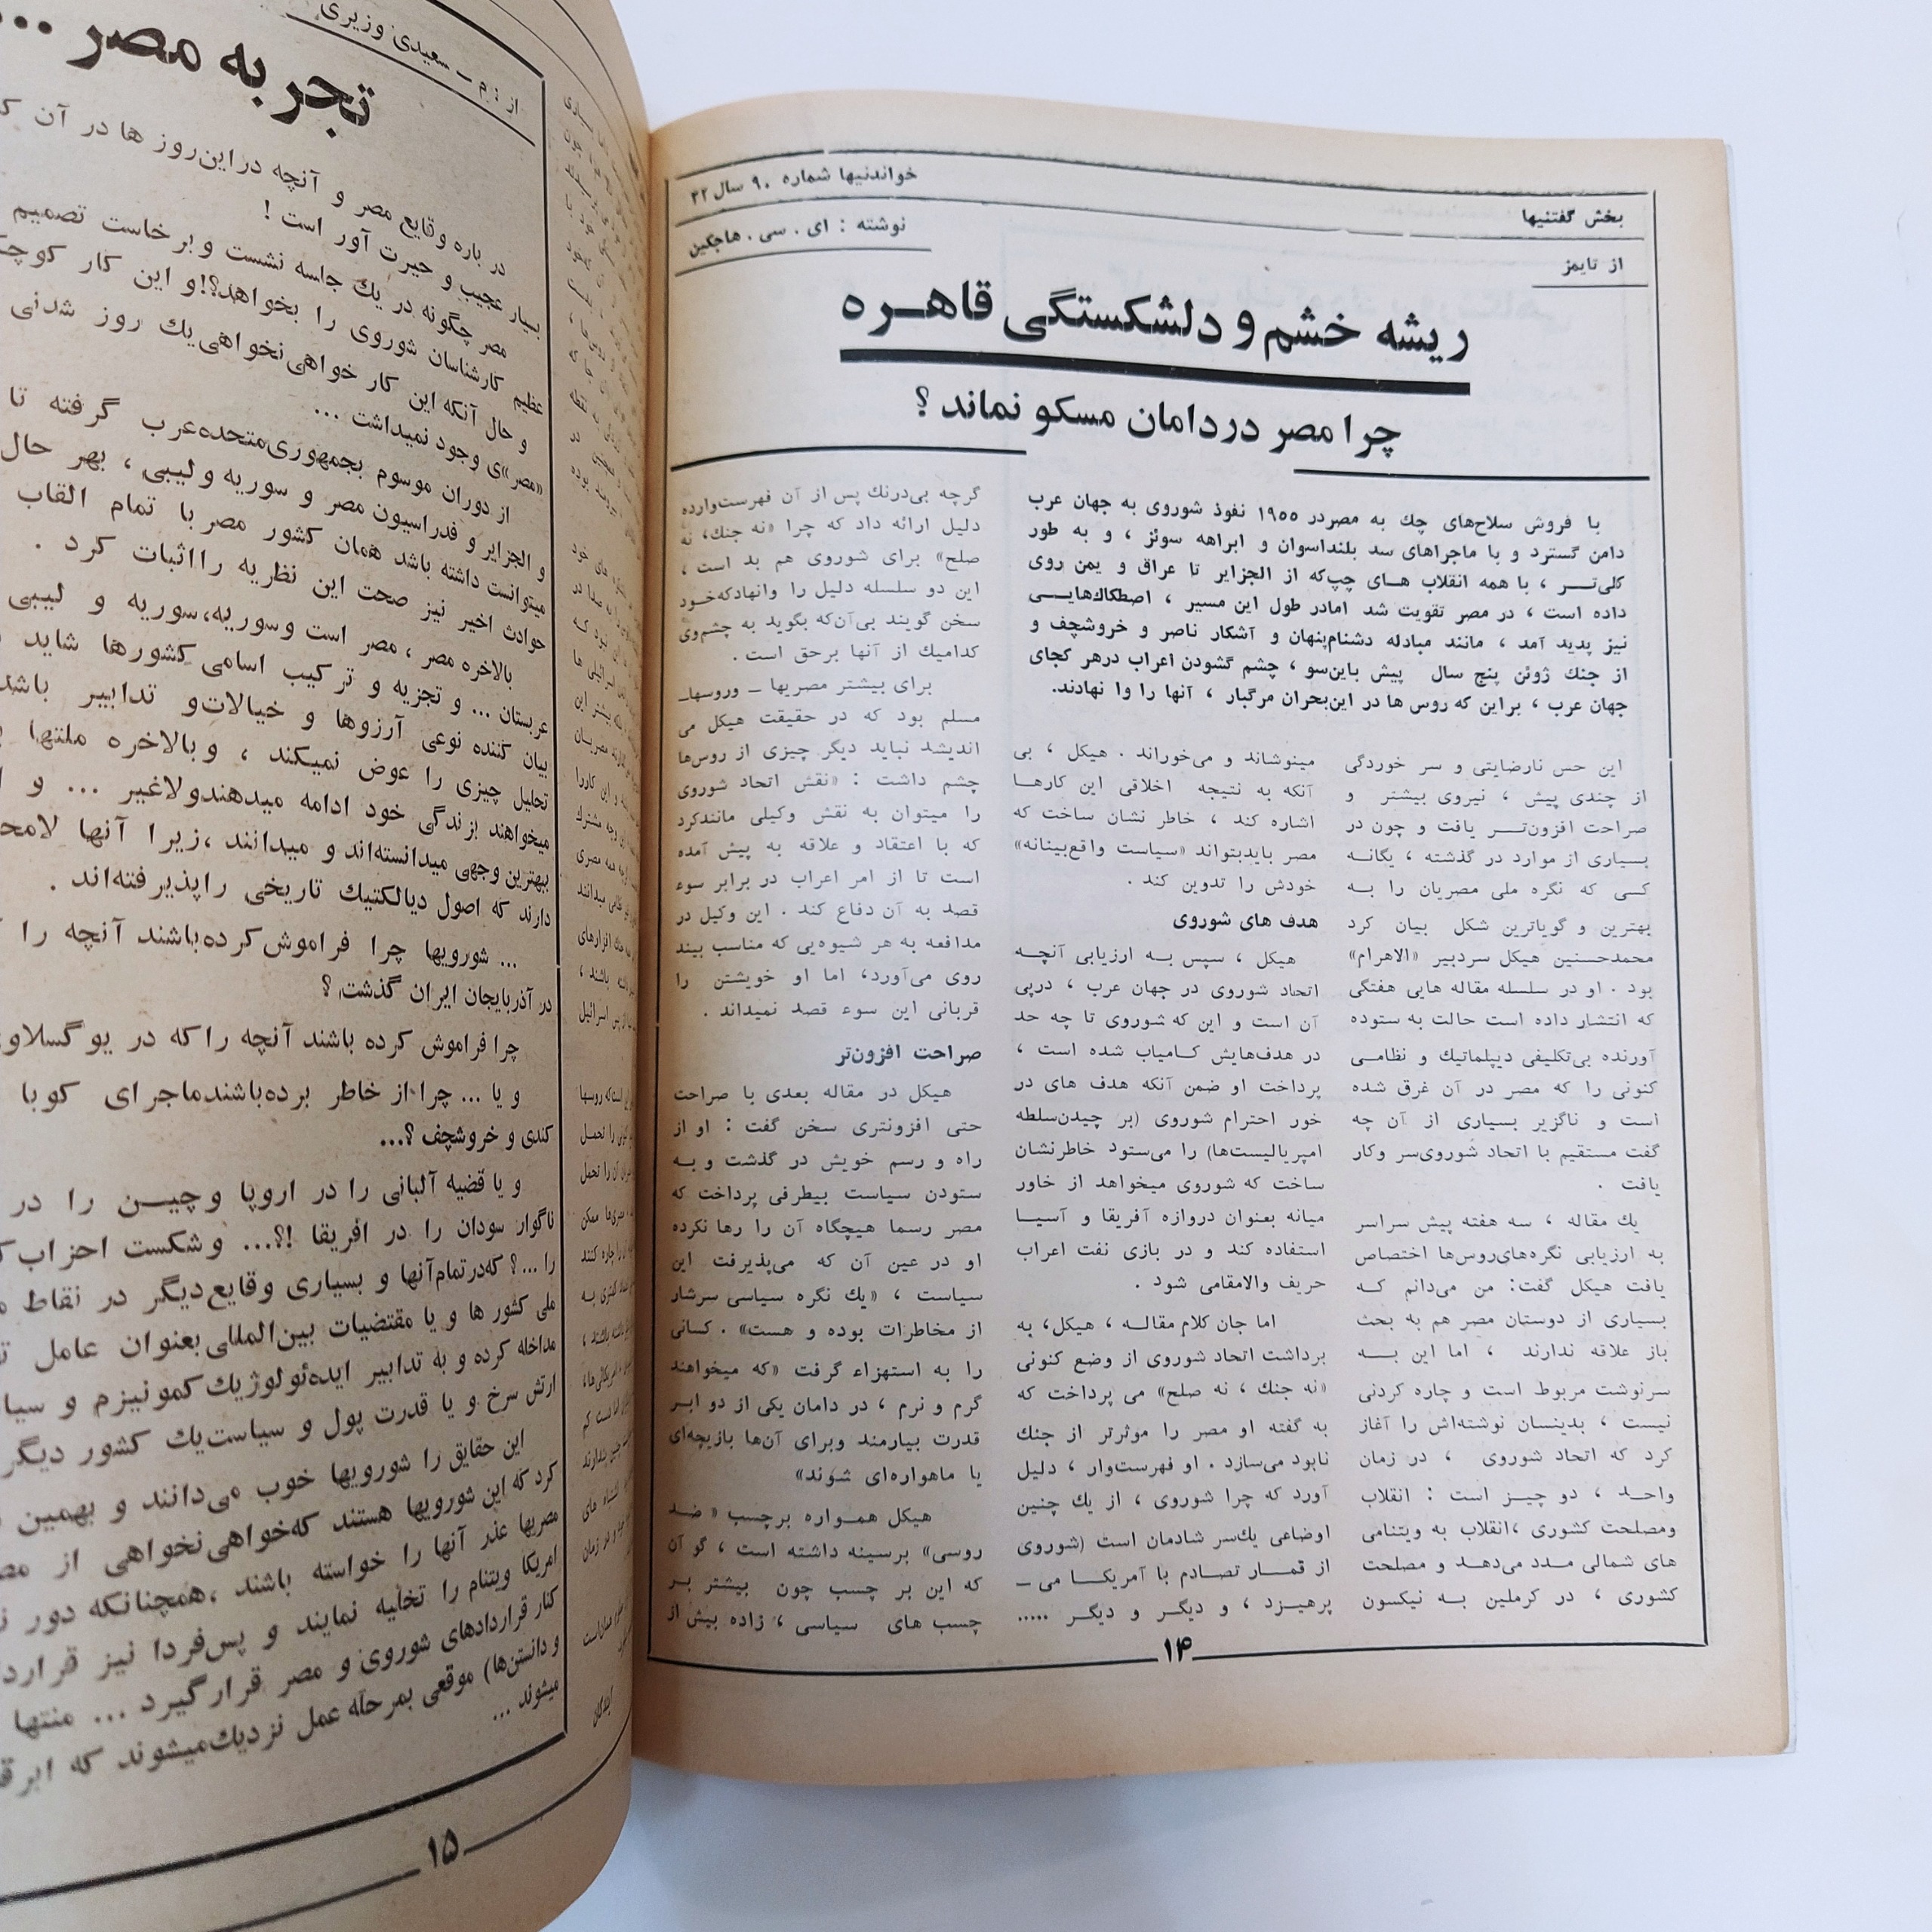 بخش گفتنیها
خواندنیها شماره ۹۰ سال ۳۲
از تایمز
نوشته : ای . سی . هاجکین
ریشه خشم و دلشکستگی قاهـره
چرا مصر در دامان مسکو نماند ؟
با فروش سلاح‌های چك به مصردر ۱۹۵۵ نفوذ شوروی به جهان عرب
دامن گسترد و با ماجراهای سد بلنداسوان و ابراهه سوئز ، و به طور
کلی‌تــر ، با همه انقلاب هــای چپ‌که از الجزایر تا عراق و یمن روی
داده است ، در مصر تقویت شد امادر طول این مسیر ، اصطکاك‌هایــی
نیز پدید آمد ، مانند مبادله دشنام‌پنهان و آشکار ناصر و خروشچف و
از جنك ژوئن پنج سال پیش باین‌سو ، چشم گشودن اعراب درهر کجای
جهان عرب ، براین که روس ها در این‌بحران مرگبار ، آنها را وا نهادند.
این حس نارضایتی و سر خوردگی
از چندی پیش ، نیروی بیشتر و
صراحت افزون‌تــر یافت و چون در
بسیاری از موارد در گذشته ، یگانــه
کــی که نگره ملی مصریان را بــه
بهترین و گویاترین شکل بیان کرد
محمدحسنین هیکل سردبیر «الاهرام»
بود . او در سلسله مقاله هایی هفتگی
که انتشار داده است حالت به ستوده
آورنده بی‌تکلیفی دیپلماتیك و نظامــی
کنونی را که مصر در آن غرق شده
است و ناگزیر بسیاری از آن چه
گفت مستقیم با اتحاد شوروی‌سر وکار
یافت .
یك مقاله ، سه هفته پیش سراسر
به ارزیابی نگره‌های‌روس‌ها اختصاص
یافت هیکل گفت: من می‌دانم کــه
بسیاری از دوستان مصر هم به بحث
باز علاقه ندارند ، اما این بــه
سرنوشت مربوط است و چاره کردنی
نیست ، بدینسان نوشته‌اش را آغاز
کرد که اتحاد شوروی ، در زمان
واحــد ، دو چیــز است : انقلاب
ومصلحت کشوری ،انقلاب به ویتنامی
های شمالی مــدد می‌دهــد و مصلحت
کشوری ، در کرملین بــه نیکسون
مینوشاند و می‌خوراند . هیکل ، بی
آنکه به نتیجه اخلاقی این کارهــا
اشاره کند ، خاطر نشان ساخت که
مصر بایدبتواند «سیاست واقع‌بینانه»
خودش را تدوین کند .
هدف های شوروی
هیکل ، سپس بــه ارزیابی آنچــه
اتحاد شوروی در جهان عرب ، درپی
آن است و این که شوروی تا چه حد
در هدف‌هایش کــامیاب شده است ،
پرداخت او ضمن آنکه هدف های در
خور احترام شوروی (بر چیدن‌سلطه
امپریالیست‌ها) را می‌ستود خاطرنشان
ساخت که شوروی میخواهد از خاور
میانه بعنوان دروازه آفریقا و آسیــا
استفاده کند و در بازی نفت اعراب
حریف والامقامی شود .
اما جان کلام مقالــه ، هیکل، به
برداشت اتحاد شوروی از وضع کنونی
«نه جنك ، نه صلح» می پرداخت که
به گفته او مصر را موثرتر از جنك
نابود می‌سازد . او فهرست‌وار ، دلیل
آورد که چرا شوروی ، از یك چنین
اوضاعی یك‌سر شادمان است (شوروی
از قمــار تصــادم با آمریکــا می ـ
پرهیــزد ، و دیگــر و دیگــر .....
گرچه بی‌درنك پس از آن فهرست‌وارده
دلیل ارائه داد که چرا «نه جنك، نه
صلح» برای شوروی هم بد است ،
این دو سلسله دلیل را وانهادکه‌خــود
سخن گویند بی‌آن‌که بگوید به چشم‌وی
کدامیك از آنها برحق است .
برای بیشتر مصریها ـ وروسهاـ
مسلم بود که در حقیقت هیکل می
اندیشد نباید دیگر چیزی از روس‌ها
چشم داشت : «نقش اتحاد شوروی
را میتوان به نقش وکیلی مانندکرد
که با اعتقاد و علاقه به پیش آمده
است تا از امر اعراب در برابر سوء
قصد به آن دفاع کند . این وکیل در
مدافعه به هر شیوه‌یی که مناسب بیند
روی می‌آورد، اما او خویشتن را
قربانی این سوء قصد نمیداند .
صراحت افزون‌تر
هیکل در مقاله بعدی با صراحت
حتی افزونتری سخن گفت : او از
راه و رسم خویش در گذشت و بــه
ستودن سیاست بیطرفی پرداخت که
مصر رسما هیچگاه آن را رها نکرده
او در عین آن که می‌پذیرفت این
سیاست ، «یك نگره سیاسی سرشار
از مخاطرات بوده و هست» . کسانی
را به استهزاء گرفت «که میخواهند
گرم و نرم ، در دامان یکی از دو ابــر
قدرت بیارمند وبرای آن‌ها بازیچه‌ای
یا ماهواره‌ای شوند»
هیکل همــواره برچسب « ضــد
روسی» برسینه داشته است ، گو آن
که این بر چسب چون بیشتر بــر
چسب های سیاسی ، زاده بیش از
۱۴
از : م ـ سعیدی وزیری
تجربه مصر ...
در باره وقایع مصر و آنچه دراین‌روز ها در آن
بسیار عجیب و حیرت آور است !
مصر چگونه در یك جلسه نشست و بر خاست تصمیم
عظیم کارشناسان شوروی را بخواهد؟!و این کار
و حال آنکه این کار خواهی‌نخواهی‌یك روز شدنی
«مصر»ی وجود نمیداشت ...
از دوران موسوم بجمهوری‌متحده‌عرب گرفته تا
و الجزایر و فدراسیون مصر و سوریه ولیبی ، بهر حال
میتوانست داشته باشد همان کشور مصر با تمام القاب
حوادث اخیر نیز صحت این نظریه رااثبات کرد .
بالاخره مصر ، مصر است وسوریه،سوریه و لیبی
عربستان ... و تجزیه و ترکیب اسامی کشورها شاید
بیان کننده نوعی آرزوها و خیالات‌و تدابیر باشد
تحلیل چیزی را عوض نمیکند ، و بالاخره ملتها
میخواهند بزندگی خود ادامه میدهندولاغیر ... و
ببهترین وجهی میدانسته‌اند و میدانند ،زیرا آنها
دارند که اصول دیالکتیك تاریخی راپذیرفته‌اند .
... شورویها چرا فراموش‌کرده‌باشند آنچه را
در آذربایجان ایران گذشت ؟
چرا فراموش کرده باشند آنچه راکه در
و یا ... چرا از خاطر برده‌باشندماجرای کوبا
کندی و خروشچف ؟...
و یا قضیه آلبانی را در اروپا وچیــن را در
ناگوار سودان را در افریقا !؟... وشکست احزاب
را ...؟ که‌درتمام‌آنها و بسیاری وقایع‌دیگر در نقاط
ملی کشور ها و یا مقتضیات بین‌المللی‌بعنوان عامل
مداخله کرده و به تدابیر ایده‌ئولوژیك‌کمونیزم و
ارتش سرخ و یا قدرت پول و سیاست‌یك کشور دیگر
این حقایق را شورویها خوب می‌دانند و بهمین
کرد که این شورویها هستند که‌خواهی‌نخواهی از
مصریها عذر آنها را خواسته باشند ،همچنانکه دور
امریکا ویتنام را تخلیه نمایند و پس‌فردا نیز
کنار قراردادهای شوروی و مصر قرارگیرد ... منتها
و دانستن‌ها) موقعی بمرحله عمل نزدیك‌میشوند که
میشوند ...
۱۵